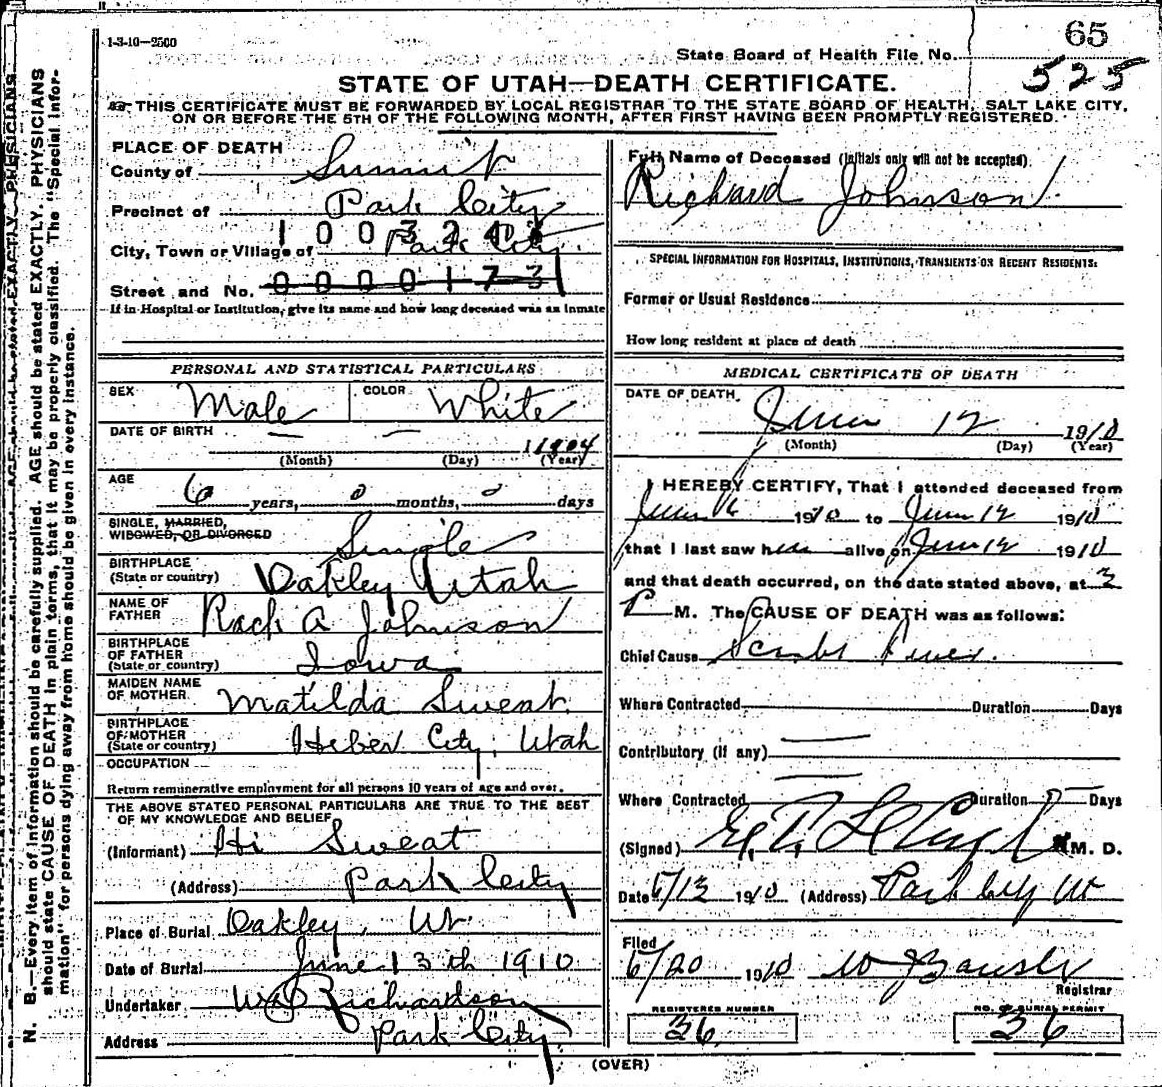 1-3-10—2500
65
State Board of Health File No.
525
STATE OF UTAH—DEATH CERTIFICATE.
THIS CERTIFICATE MUST BE FORWARDED BY LOCAL REGISTRAR TO THE STATE BOARD OF HEALTH, SALT LAKE CITY,
ON OR BEFORE THE 5TH OF THE FOLLOWING MONTH, AFTER FIRST HAVING BEEN PROMPTLY REGISTERED.
N. B.—Every item of information should be carefully supplied. AGE should be stated EXACTLY. PHYSICIANS
should state CAUSE OF DEATH in plain terms, that it may be properly classified. The "Special Infor-
mation" for persons dying away from home should be given in every instance.
PLACE OF DEATH
County of Summit
Precinct of Park City
City, Town or Village of Park City
Street and No. 0000173
If in Hospital or Institution, give its name and how long deceased was an inmate
PERSONAL AND STATISTICAL PARTICULARS
SEX Male COLOR White
DATE OF BIRTH 1904
(Month) (Day) (Year)
AGE 6 years, 0 months, days
SINGLE, MARRIED,
WIDOWED, OR DIVORCED Single
BIRTHPLACE
(State or country) Oakley Utah
NAME OF
FATHER A Johnson
BIRTHPLACE
OF FATHER
(State or country) Iowa
MAIDEN NAME
OF MOTHER Matilda Sweat
BIRTHPLACE
OF MOTHER
(State or country) Heber City, Utah
OCCUPATION
Return remunerative employment for all persons 10 years of age and over.
THE ABOVE STATED PERSONAL PARTICULARS ARE TRUE TO THE BEST
OF MY KNOWLEDGE AND BELIEF
(Informant) Hi Sweat
(Address) Park City
Place of Burial Oakley, Ut
Date of Burial June 13th 1910
Undertaker Richardson
Address Park City
Full Name of Deceased (Initials only will not be accepted)
Richard Johnson
SPECIAL INFORMATION FOR HOSPITALS, INSTITUTIONS, TRANSIENTS OR RECENT RESIDENTS:
Former or Usual Residence
How long resident at place of death
MEDICAL CERTIFICATE OF DEATH
DATE OF DEATH
June 12 1910
(Month) (Day) (Year)
I HEREBY CERTIFY, That I attended deceased from
June 1910 to June 12 1910
that I last saw h alive on June 12 1910
and that death occurred, on the date stated above, at 3
P M. The CAUSE OF DEATH was as follows:
Chief Cause
Where Contracted Duration Days
Contributory (if any)
Where Contracted Duration Days
(Signed) M. D.
Date 6/13 1910 (Address) Park City Ut
Filed
6/20 1910
Registrar
REGISTERED NUMBER
36
NO. OF BURIAL PERMIT
36
(OVER)